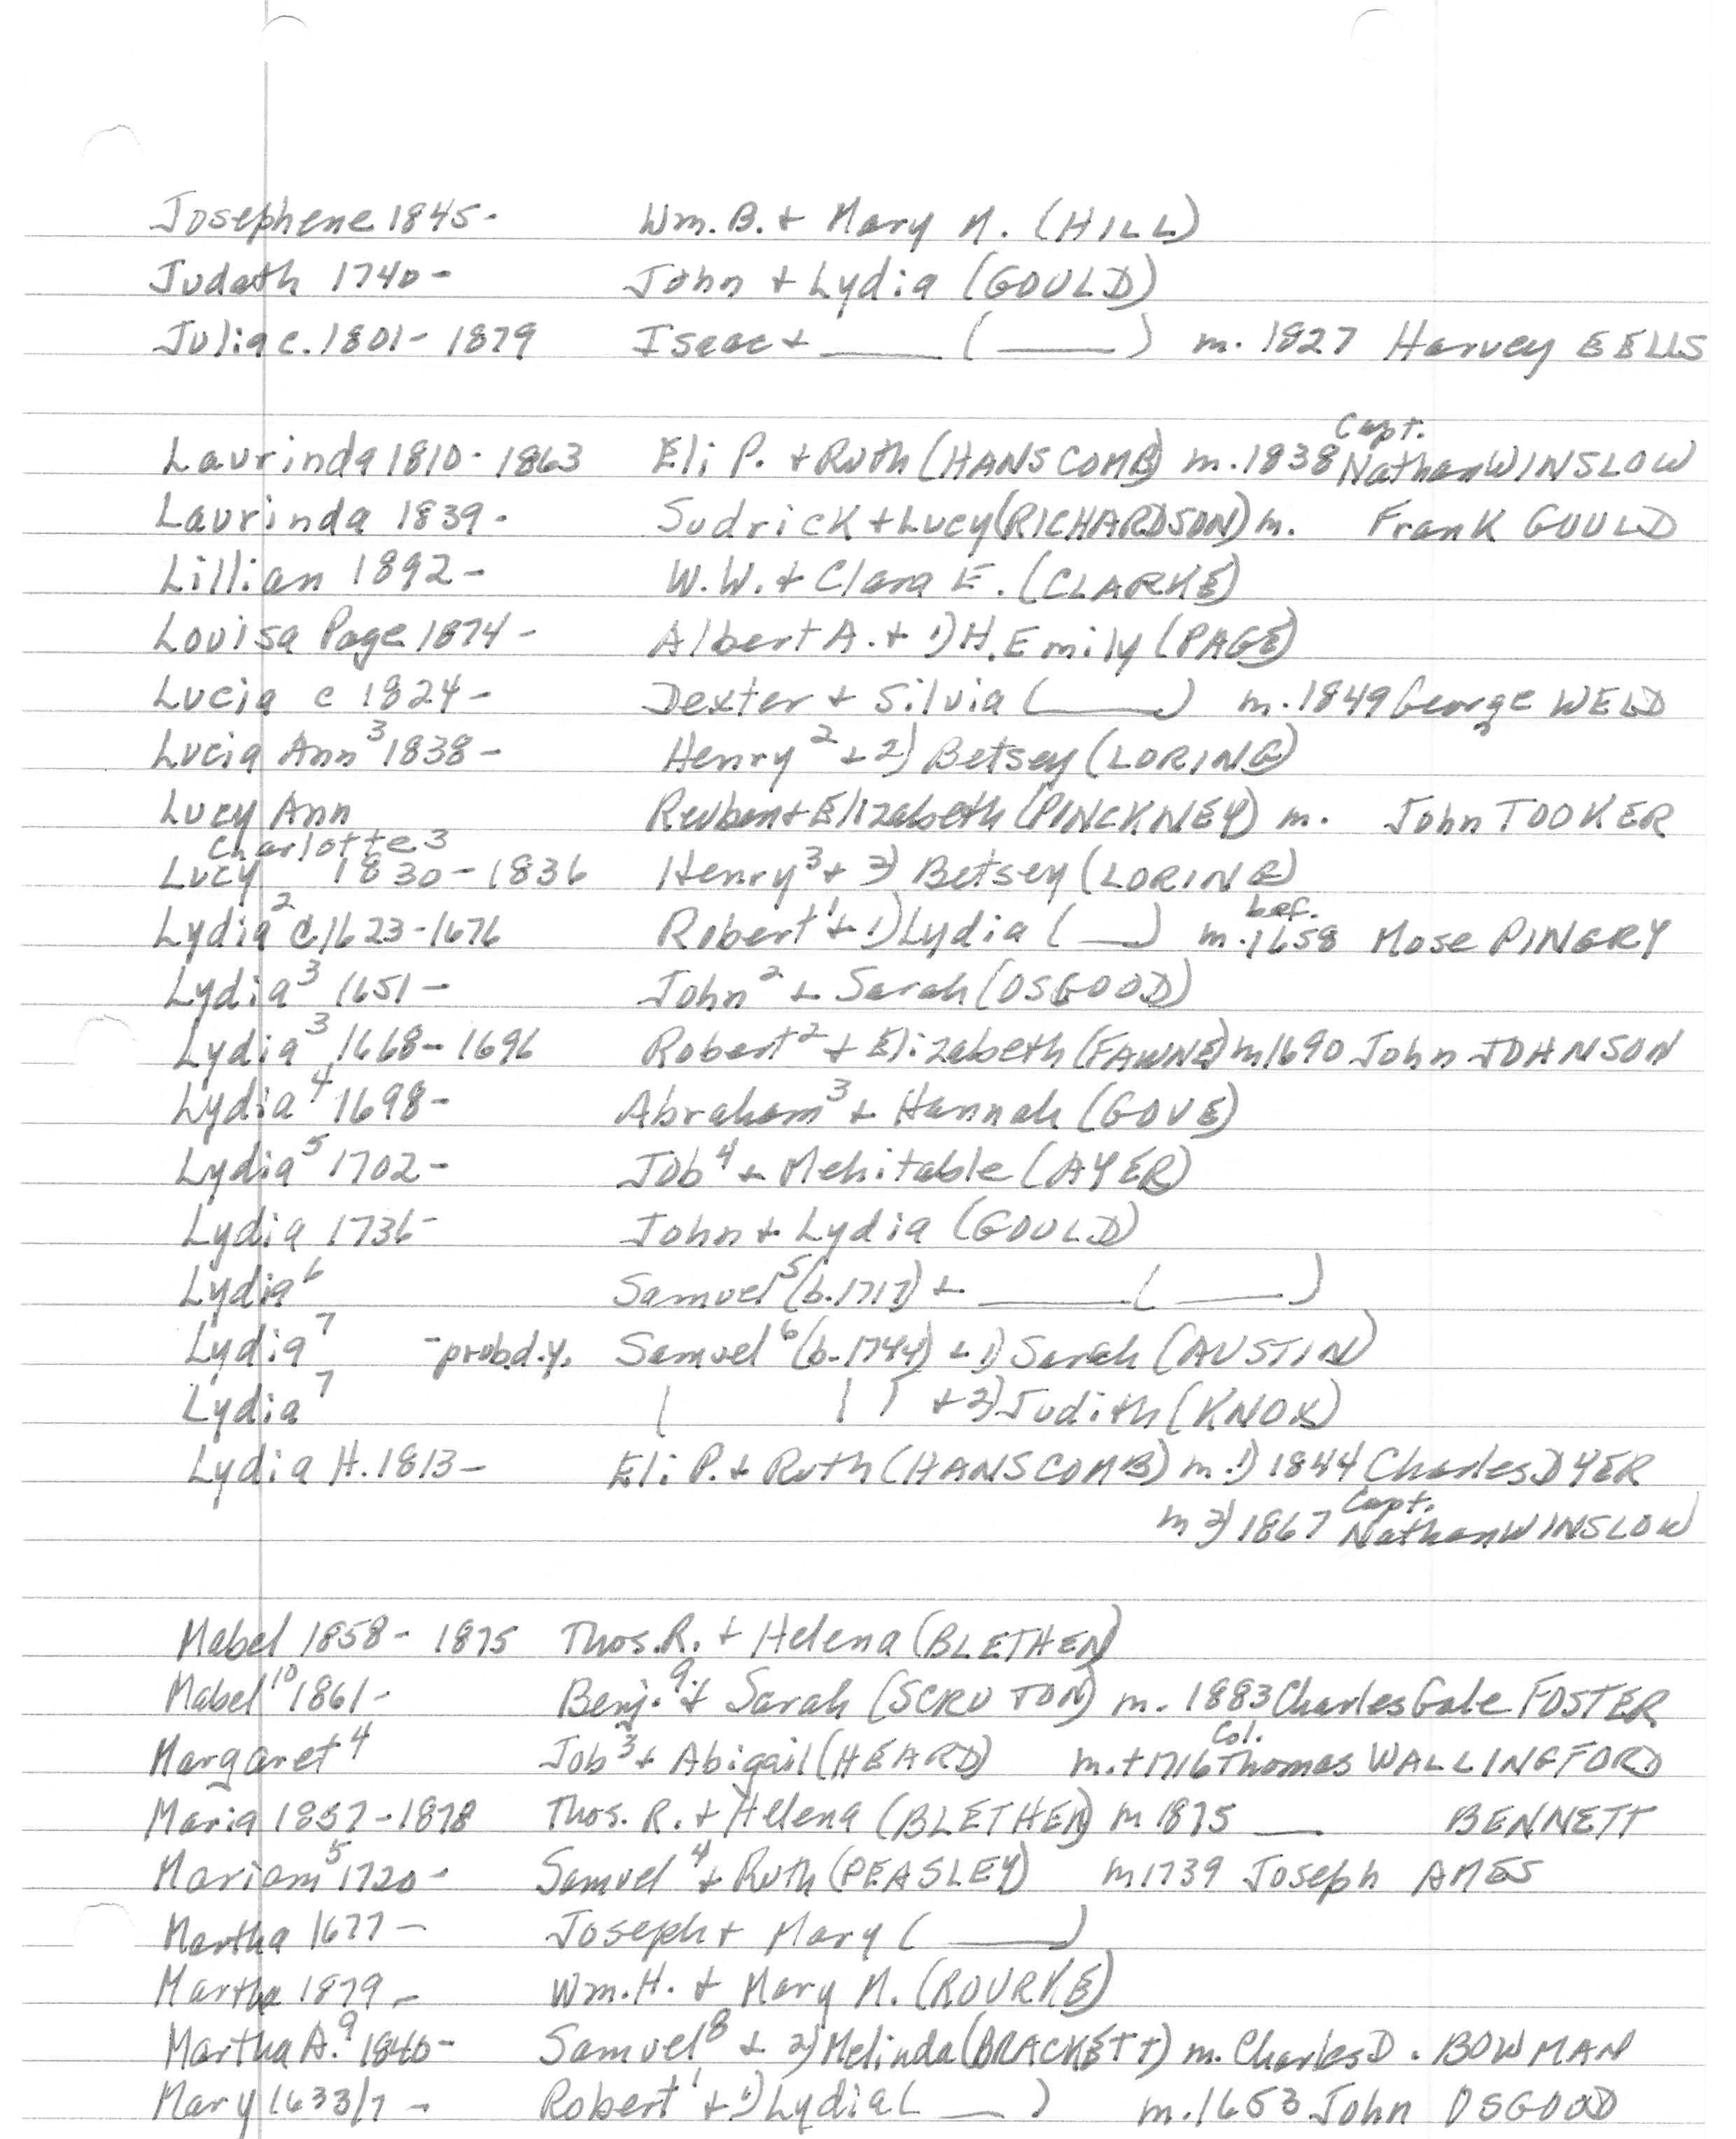 Josephene 1845- Wm. B. + Mary M. (HILL)
Judath 1740- John + Lydia (GOULD)
Julia c. 1801- 1879 Iseac + ____ ( ____ ) m. 1827 Harvey EELLS
Capt.
Laurinda 1810- 1863 Eli P. + Ruth (HANSCOMB) m. 1838 Nathan WINSLOW
Laurinda 1839- Sudrick + Lucy (RICHARDSON) m. Frank GOULD
Lillian 1892- W.W. + Clara E. (CLARKE)
Louisa Page 1874- Albert A. + 1) H. Emily (PAGE)
Lucia c 1824- Dexter + Silvia ( ____ ) m. 1849 George WELD
Lucia Ann³ 1838- Henry² + 2) Betsey (LORING)
Lucy Ann Reuben + Elizabeth (PINCKNEY) m. John TOOKER
Charlotte³
Lucy 1830-1836 Henry³ + 2) Betsey (LORING)
bef.
Lydia² c.1623-1676 Robert¹ + 1) Lydia ( __ ) m. 1658 Mose PINGRY
Lydia³ 1651- John² + Sarah (OSGOOD)
Lydia³ 1668-1696 Robert² + Elizabeth (FAWNE) m1690 John JOHNSON
Lydia⁴ 1698- Abraham³ + Hannah (GOVE)
Lydia⁵ 1702- Job⁴ + Mehitable (AYER)
Lydia 1736- John + Lydia (GOULD)
Lydia⁶ Samuel⁵ (b.1717) + ____ ( ____ )
Lydia⁷ -prob d.y. Samuel⁶ (b.1744) + 1) Sarah (AUSTIN)
Lydia⁷ | | | + 2) Judith (KNOX)
Lydia H. 1813- Eli P. + Ruth (HANSCOMB) m 1) 1844 Charles DYER
Capt.
m 2) 1867 Nathan WINSLOW
Mabel 1858- 1875 Thos. R. + Helena (BLETHEN)
Mabel¹⁰ 1861- Benj.⁹ + Sarah (SCRUTON) m. 1883 Charles Gale FOSTER
Col.
Margaret⁴ Job³ + Abigail (HEARD) m. +1716 Thomas WALLINGFORD
Maria 1857-1878 Thos. R. + Helena (BLETHEN) m 1875 ___ BENNETT
Mariam⁵ 1720- Samuel⁴ + Ruth (PEASLEY) m1739 Joseph AMES
Martha 1677- Joseph + Mary ( ____ )
Martha 1879- Wm. H. + Mary M. (ROURKE)
Martha A.⁹ 1840- Samuel⁸ + 2) Melinda (BRACKETT) m. Charles D. BOWMAN
Mary 1633/7- Robert¹ + 1) Lydia ( __ ) m. 1653 John OSGOOD